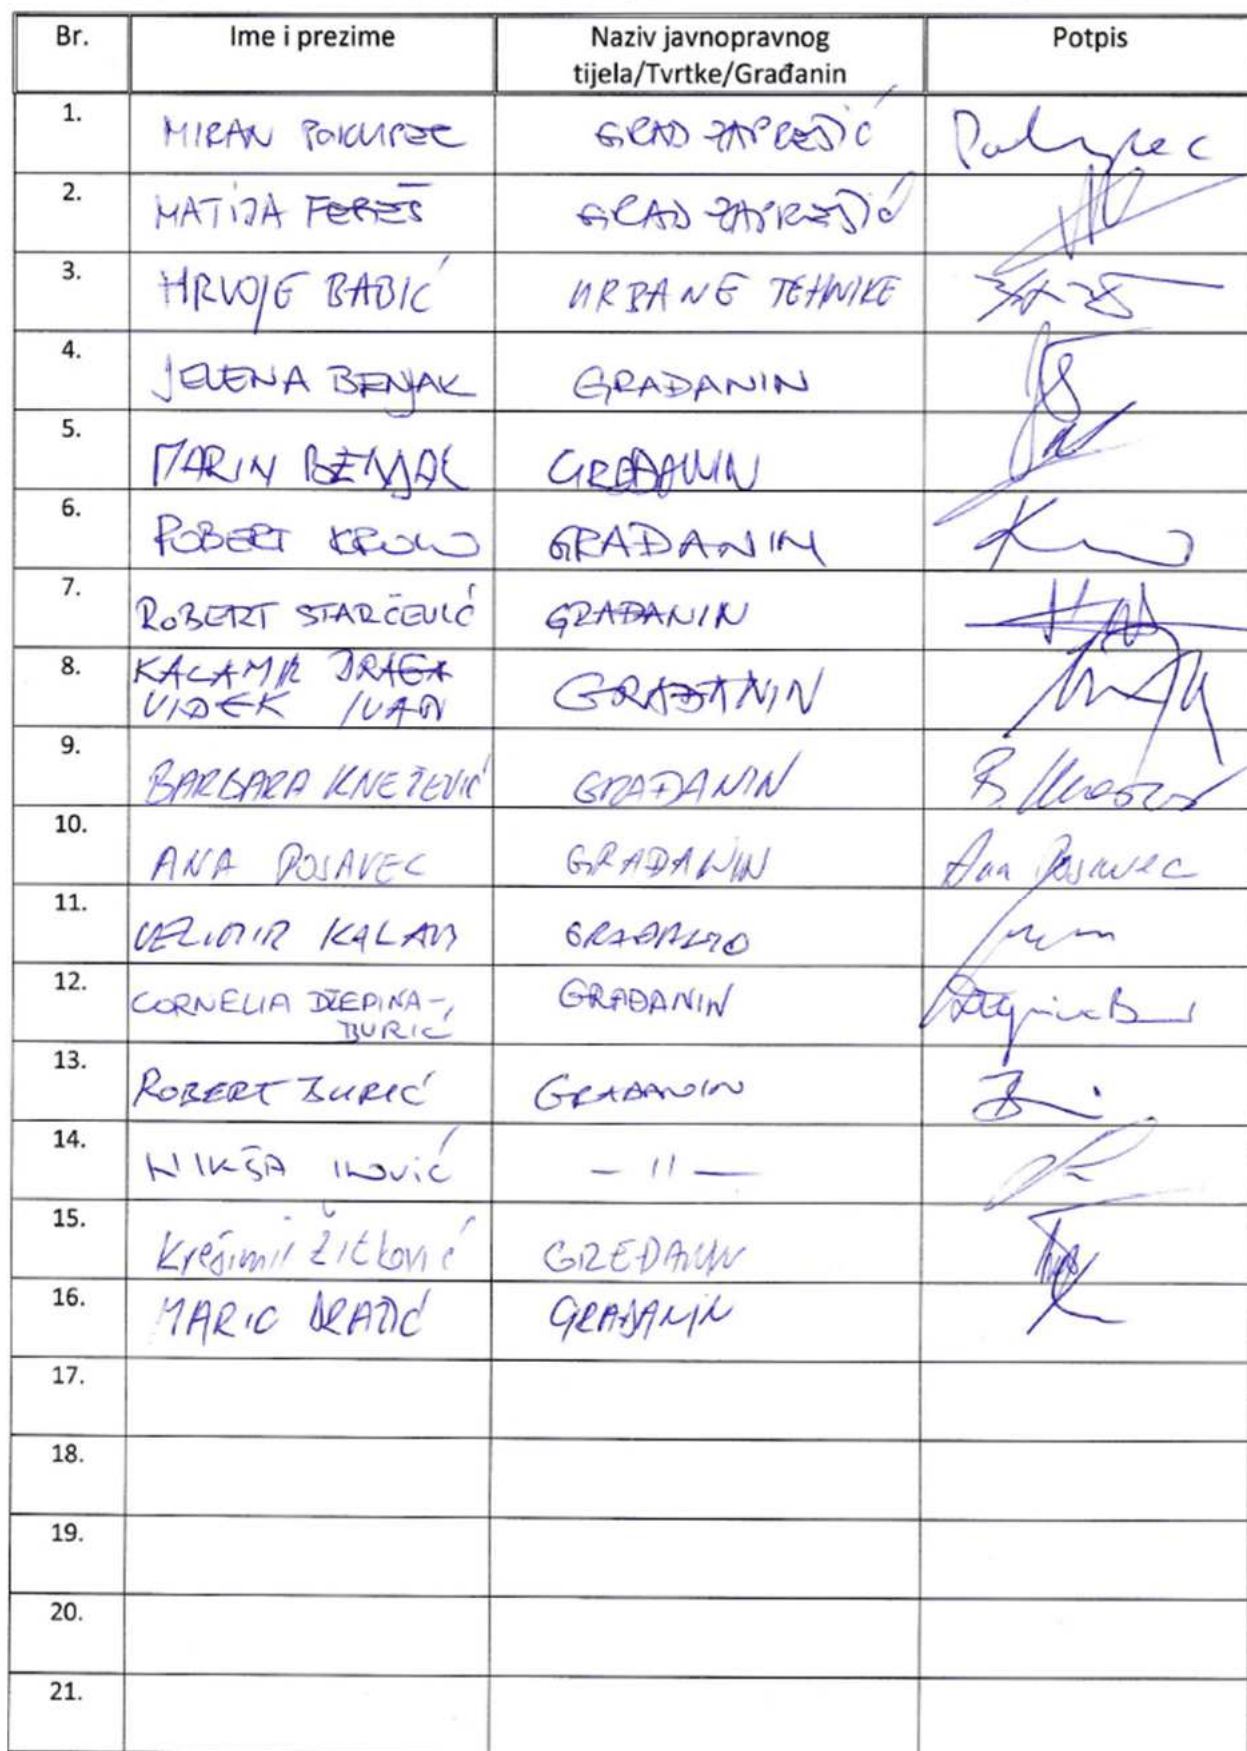 Br. Ime i prezime Naziv javnopravnog tijela/Tvrtke/Građanin Potpis
1. MIRAN POKUPEC GRAD ZAPREŠIĆ Pokupec
2. MATIJA FEREŠ GRAD ZAPREŠIĆ
3. HRVOJE BABIĆ URBANE TEHNIKE
4. JELENA BENJAK GRAĐANIN
5. MARIN BENJAK GRAĐANIN
6. ROBERT GRAĐANIN
7. ROBERT STARČEVIĆ GRAĐANIN
8. KALAMIR DRAGA
VIDEK IVAN GRAĐANIN
9. BARBARA KNEŽEVIĆ GRAĐANIN
10. ANA POSAVEC GRAĐANIN Ana Posavec
11. VELIMIR
12. CORNELIA DŽEPINA-
BURIĆ GRAĐANIN
13. ROBERT BURIĆ GRAĐANIN
14. NIKŠA — 11 —
15. Krešimir Žitković GREĐANIN
16. GRAĐANIN
17.
18.
19.
20.
21.